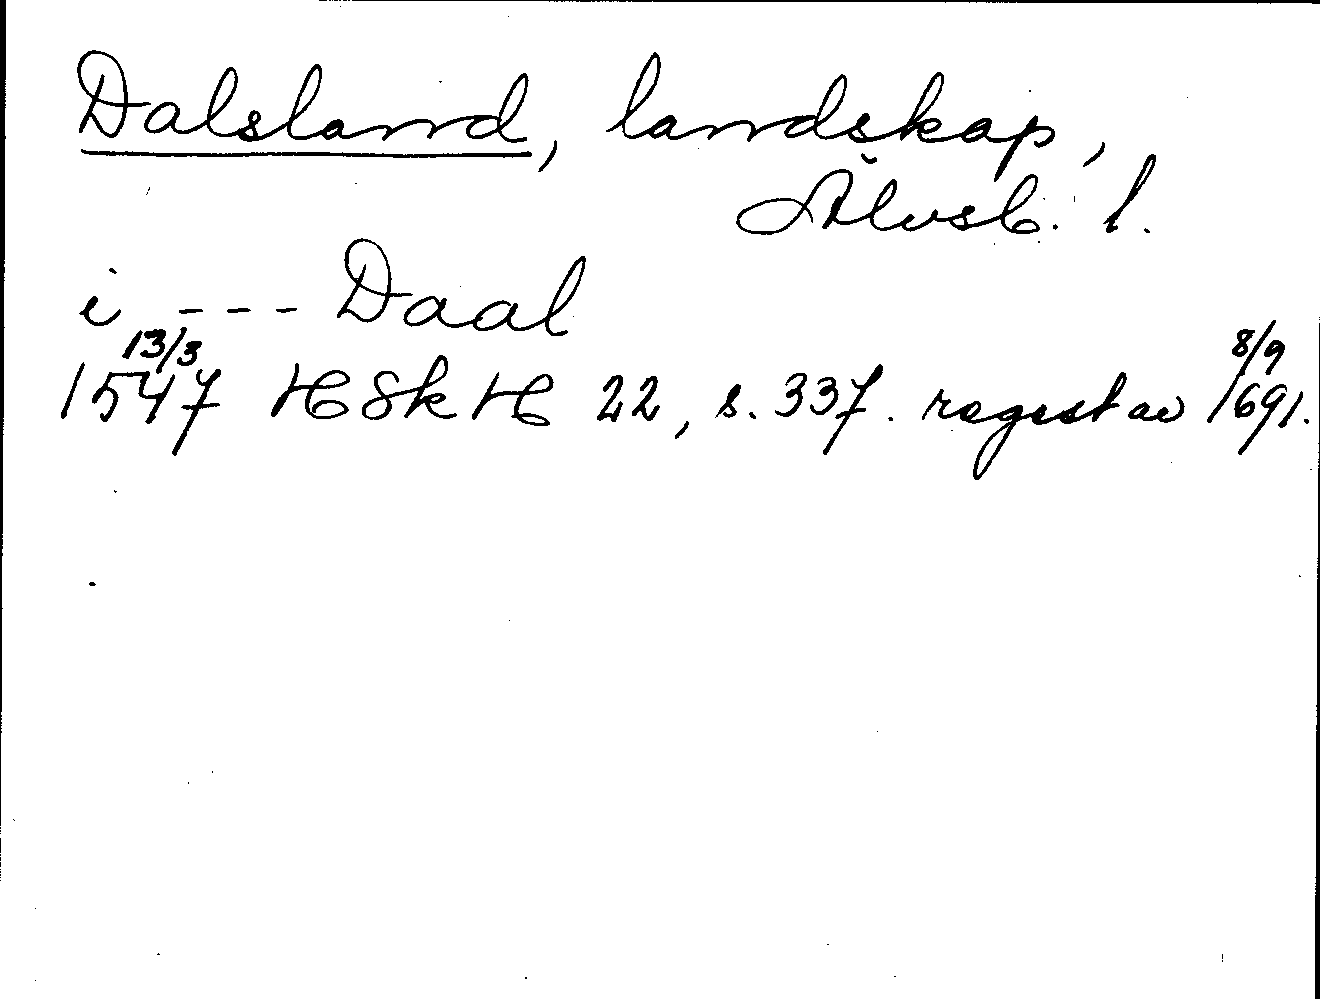 Dalsland, landskap,
Älvsb. l.
i --- Daal
13/3 8/9
1547 HSkH 22, s. 337. regest av 1691.